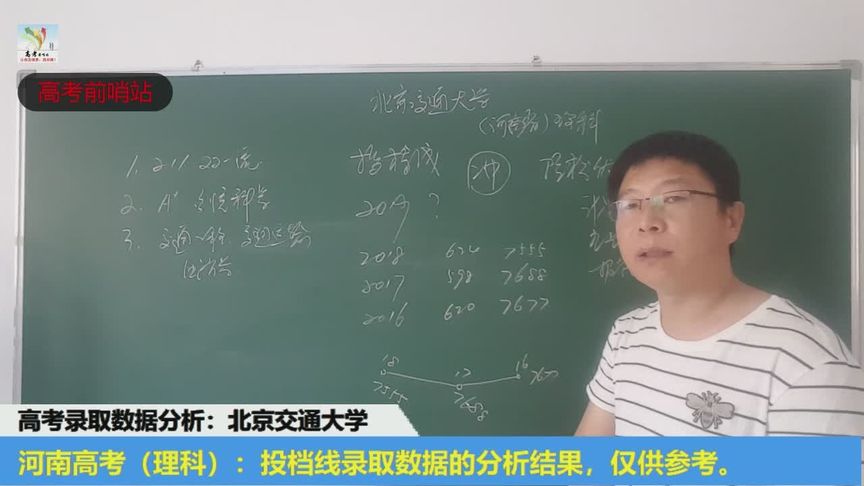 高考
高考前哨站
北京交通大学
(河南省) 理科
1. 211 双一流
投档线
冲
2. A+ 系统科学
2019 ?
3. 交通工程. 交通运输
2018 624 7555
2017 598 7688
2016 620 7677
18
17
16
7677
7555
7688
高考录取数据分析：北京交通大学
河南高考（理科）：投档线录取数据的分析结果，仅供参考。